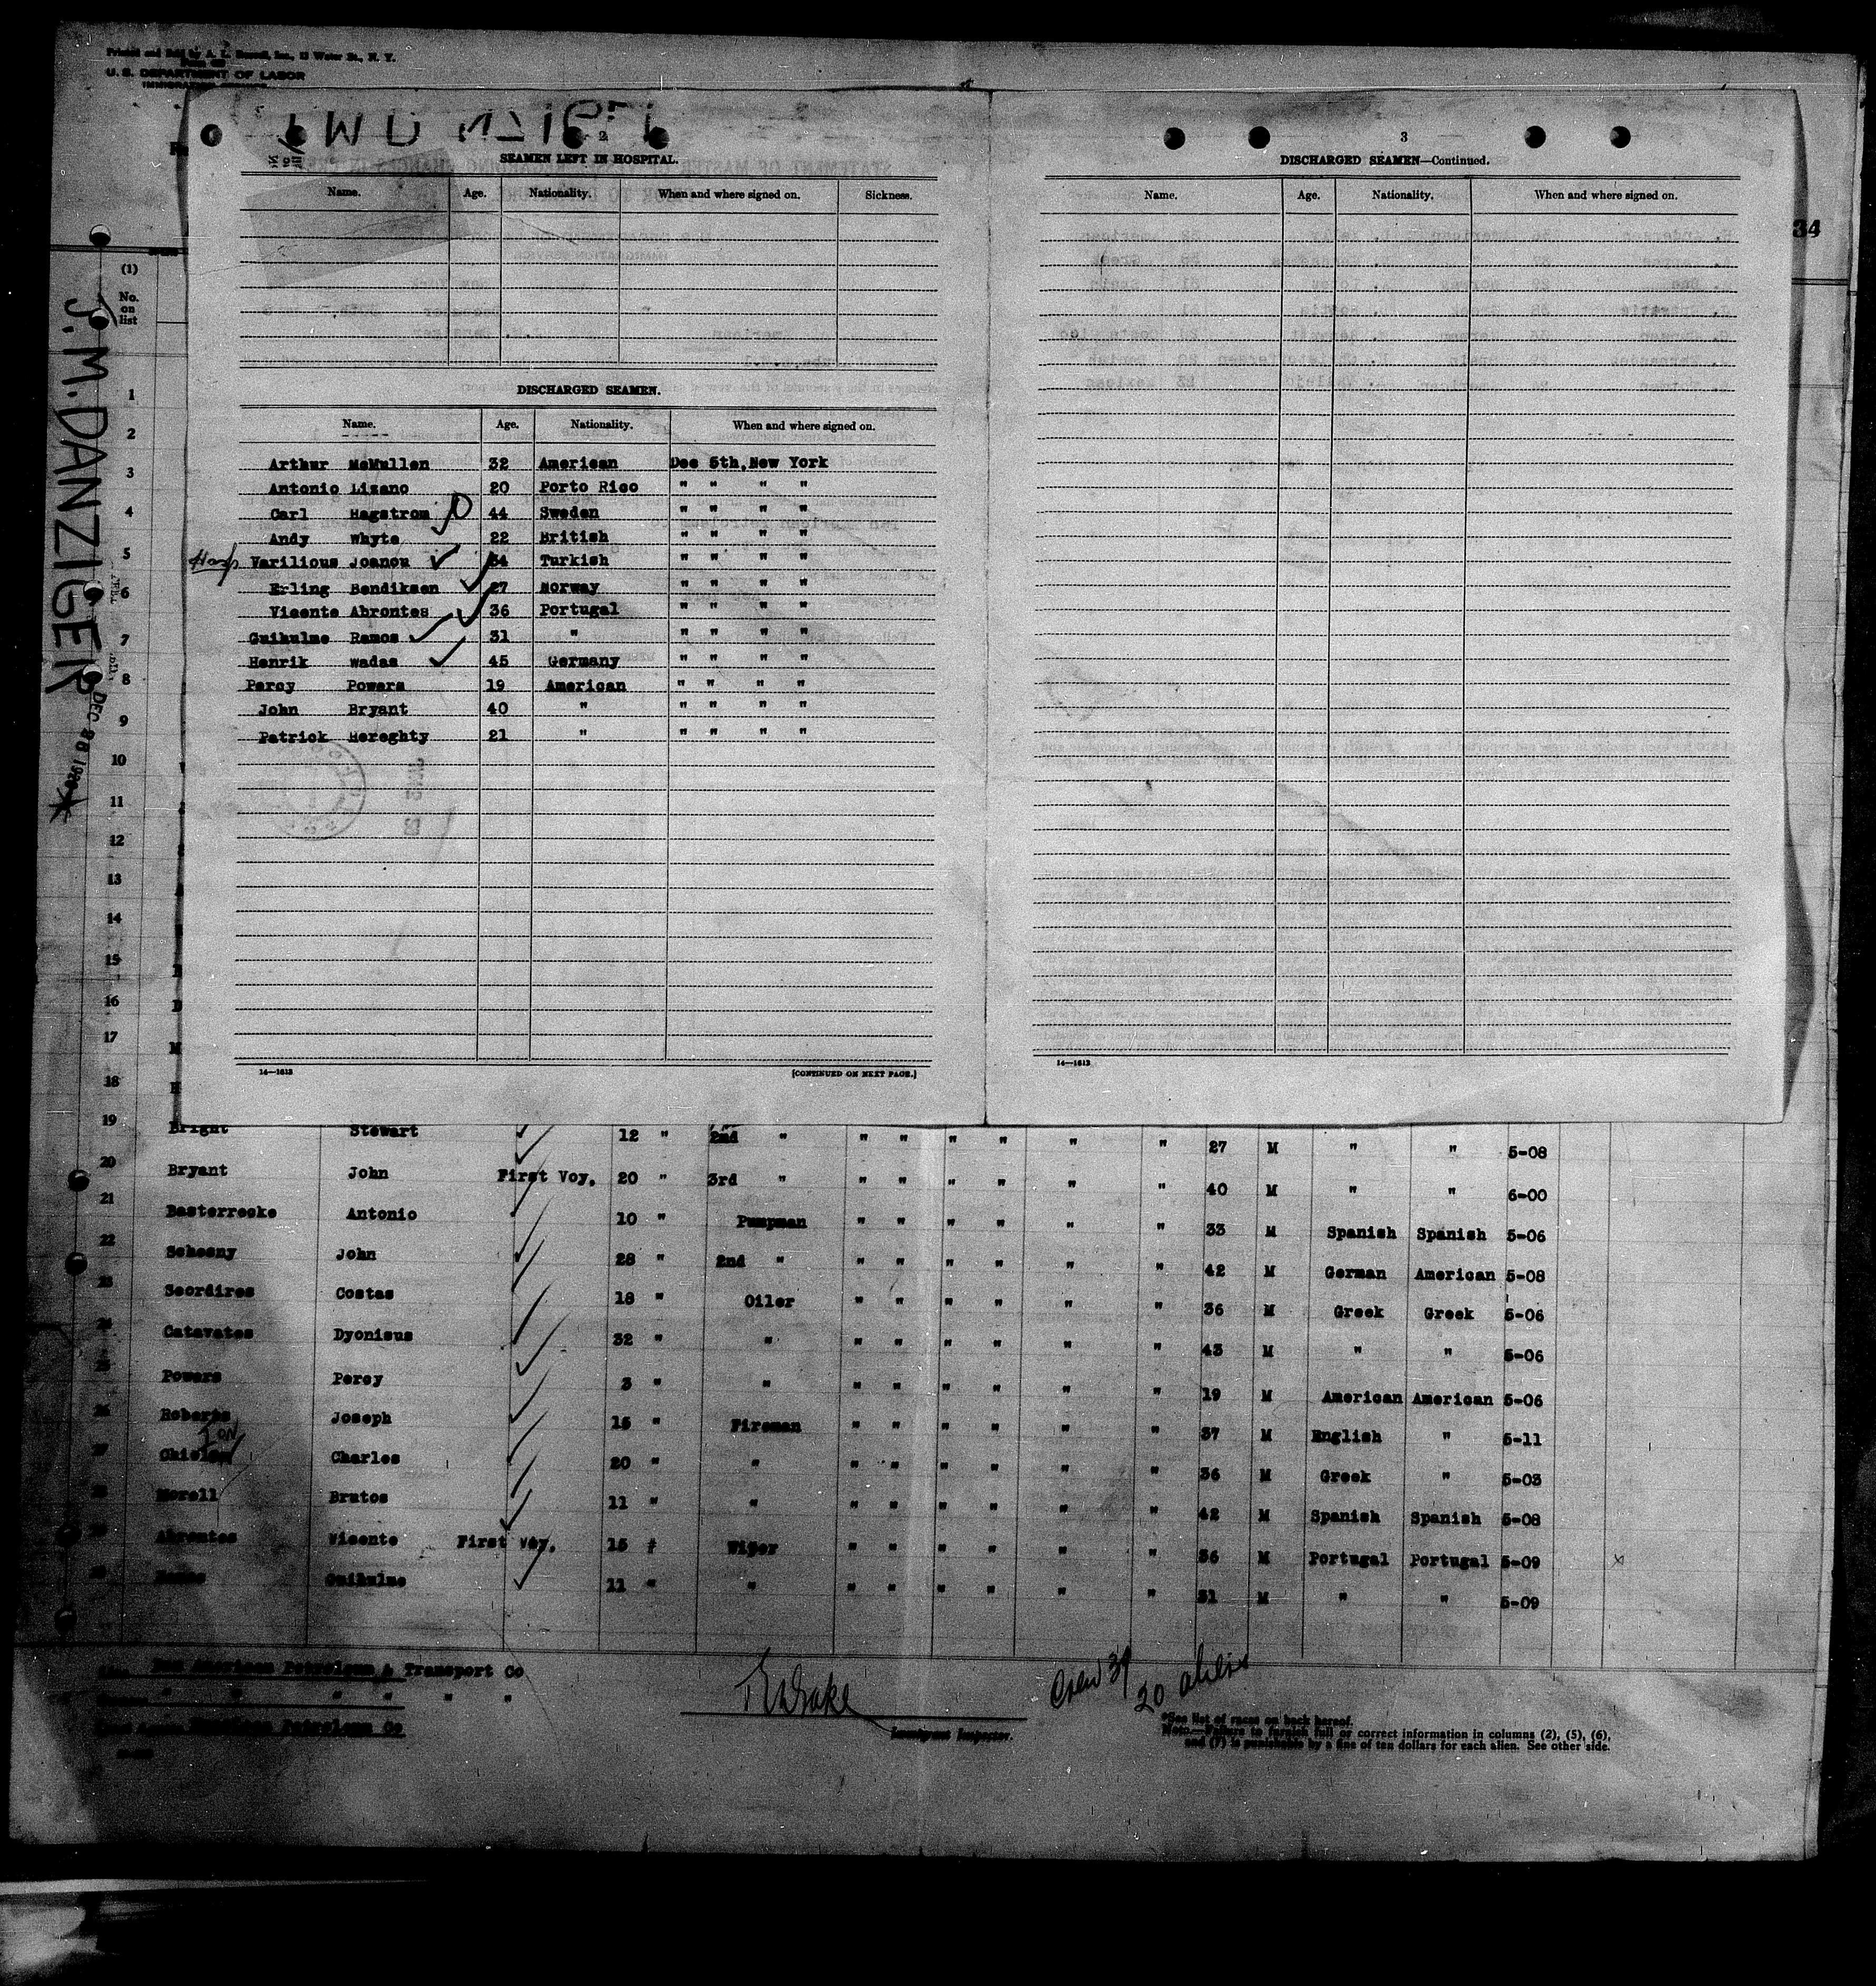 Printed and Sold by A. L. Russell, Inc., 12 Water St., N. Y.
U. S. DEPARTMENT OF LABOR
IMMIGRATION SERVICE
34
J. M. DANZIGER
DEC 26 1926
2
SEAMEN LEFT IN HOSPITAL.
Name. Age. Nationality. When and where signed on. Sickness.
DISCHARGED SEAMEN.
Name. Age. Nationality. When and where signed on.
Arthur McMullen 32 American Dec 5th, New York
Antonio Lizano 20 Porto Rico " " " "
Carl Hagstrom 44 Sweden " " " "
Andy Whyte 22 British " " " "
Hosp Varilious Joanou 34 Turkish " " " "
Erling Bendiksen 27 Norway " " " "
Vicente Abrontes 36 Portugal " " " "
Guihulme Ramos 31 " " " " "
Henrik Wadas 45 Germany " " " "
Percy Powers 19 American " " " "
John Bryant 40 " " " " "
Patrick Hereghty 21 " " " " "
14—1613
[CONTINUED ON NEXT PAGE.]
3
DISCHARGED SEAMEN—Continued.
Name. Age. Nationality. When and where signed on.
14—1613
(1)
No. on list
1
2
3
4
5
6
7
8
9
10
11
12
13
14
15
16
17
18
19 Bright Stewart 12 " 2nd " " " " " " " 27 M " " 5-08
20 Bryant John First Voy. 20 " 3rd " " " " " " " 40 M " " 6-00
21 Basterreche Antonio 10 " Pumpman " " " " " " 33 M Spanish Spanish 5-06
22 Scheeny John 28 " 2nd " " " " " " " 42 M German American 5-08
23 Scordires Costas 18 " Oiler " " " " " " 36 M Greek Greek 5-06
24 Catavates Dyonisus 32 " " " " " " " " 43 M " " 5-06
25 Powers Percy 3 " " " " " " " " 19 M American American 5-06
26 Roberts Joseph 15 " Fireman " " " " " " 37 M English " 5-11
27 Charles 20 " " " " " " " " 36 M Greek " 5-03
28 Morell Brutos 11 " " " " " " " " 42 M Spanish Spanish 5-08
29 Abrontes Vicente First Voy. 15 " Wiper " " " " " " 36 M Portugal Portugal 5-09 x
30 Ramos Guihulme 11 " " " " " " " " 31 M " " 5-09
Pan American Petroleum & Transport Co
" " " " " "
American Petroleum Co
Immigrant Inspector.
Crew 39
20 aliens
*See list of races on back hereof.
NOTE.—Failure to furnish full or correct information in columns (2), (5), (6),
and (7) is punishable by a fine of ten dollars for each alien. See other side.